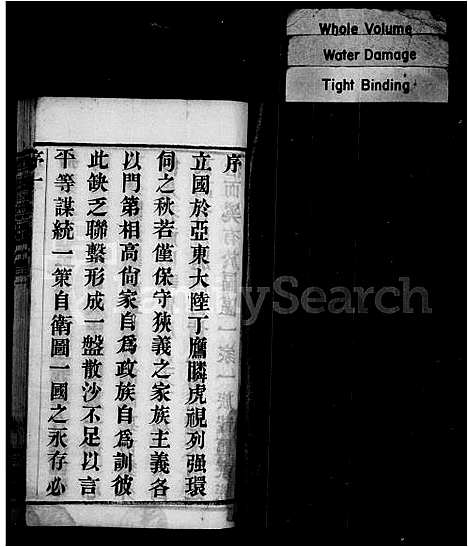 Whole Volume
Water Damage
Tight Binding
序
立國於亞東大陸丁鷹瞵虎視列强環
伺之秋若僅保守狹義之家族主義各
以門第相高尙家自爲政族自爲訓彼
此缺乏聯繫形成一盤散沙不足以言
平等謀統一策自衛圖一國之永存必
序一